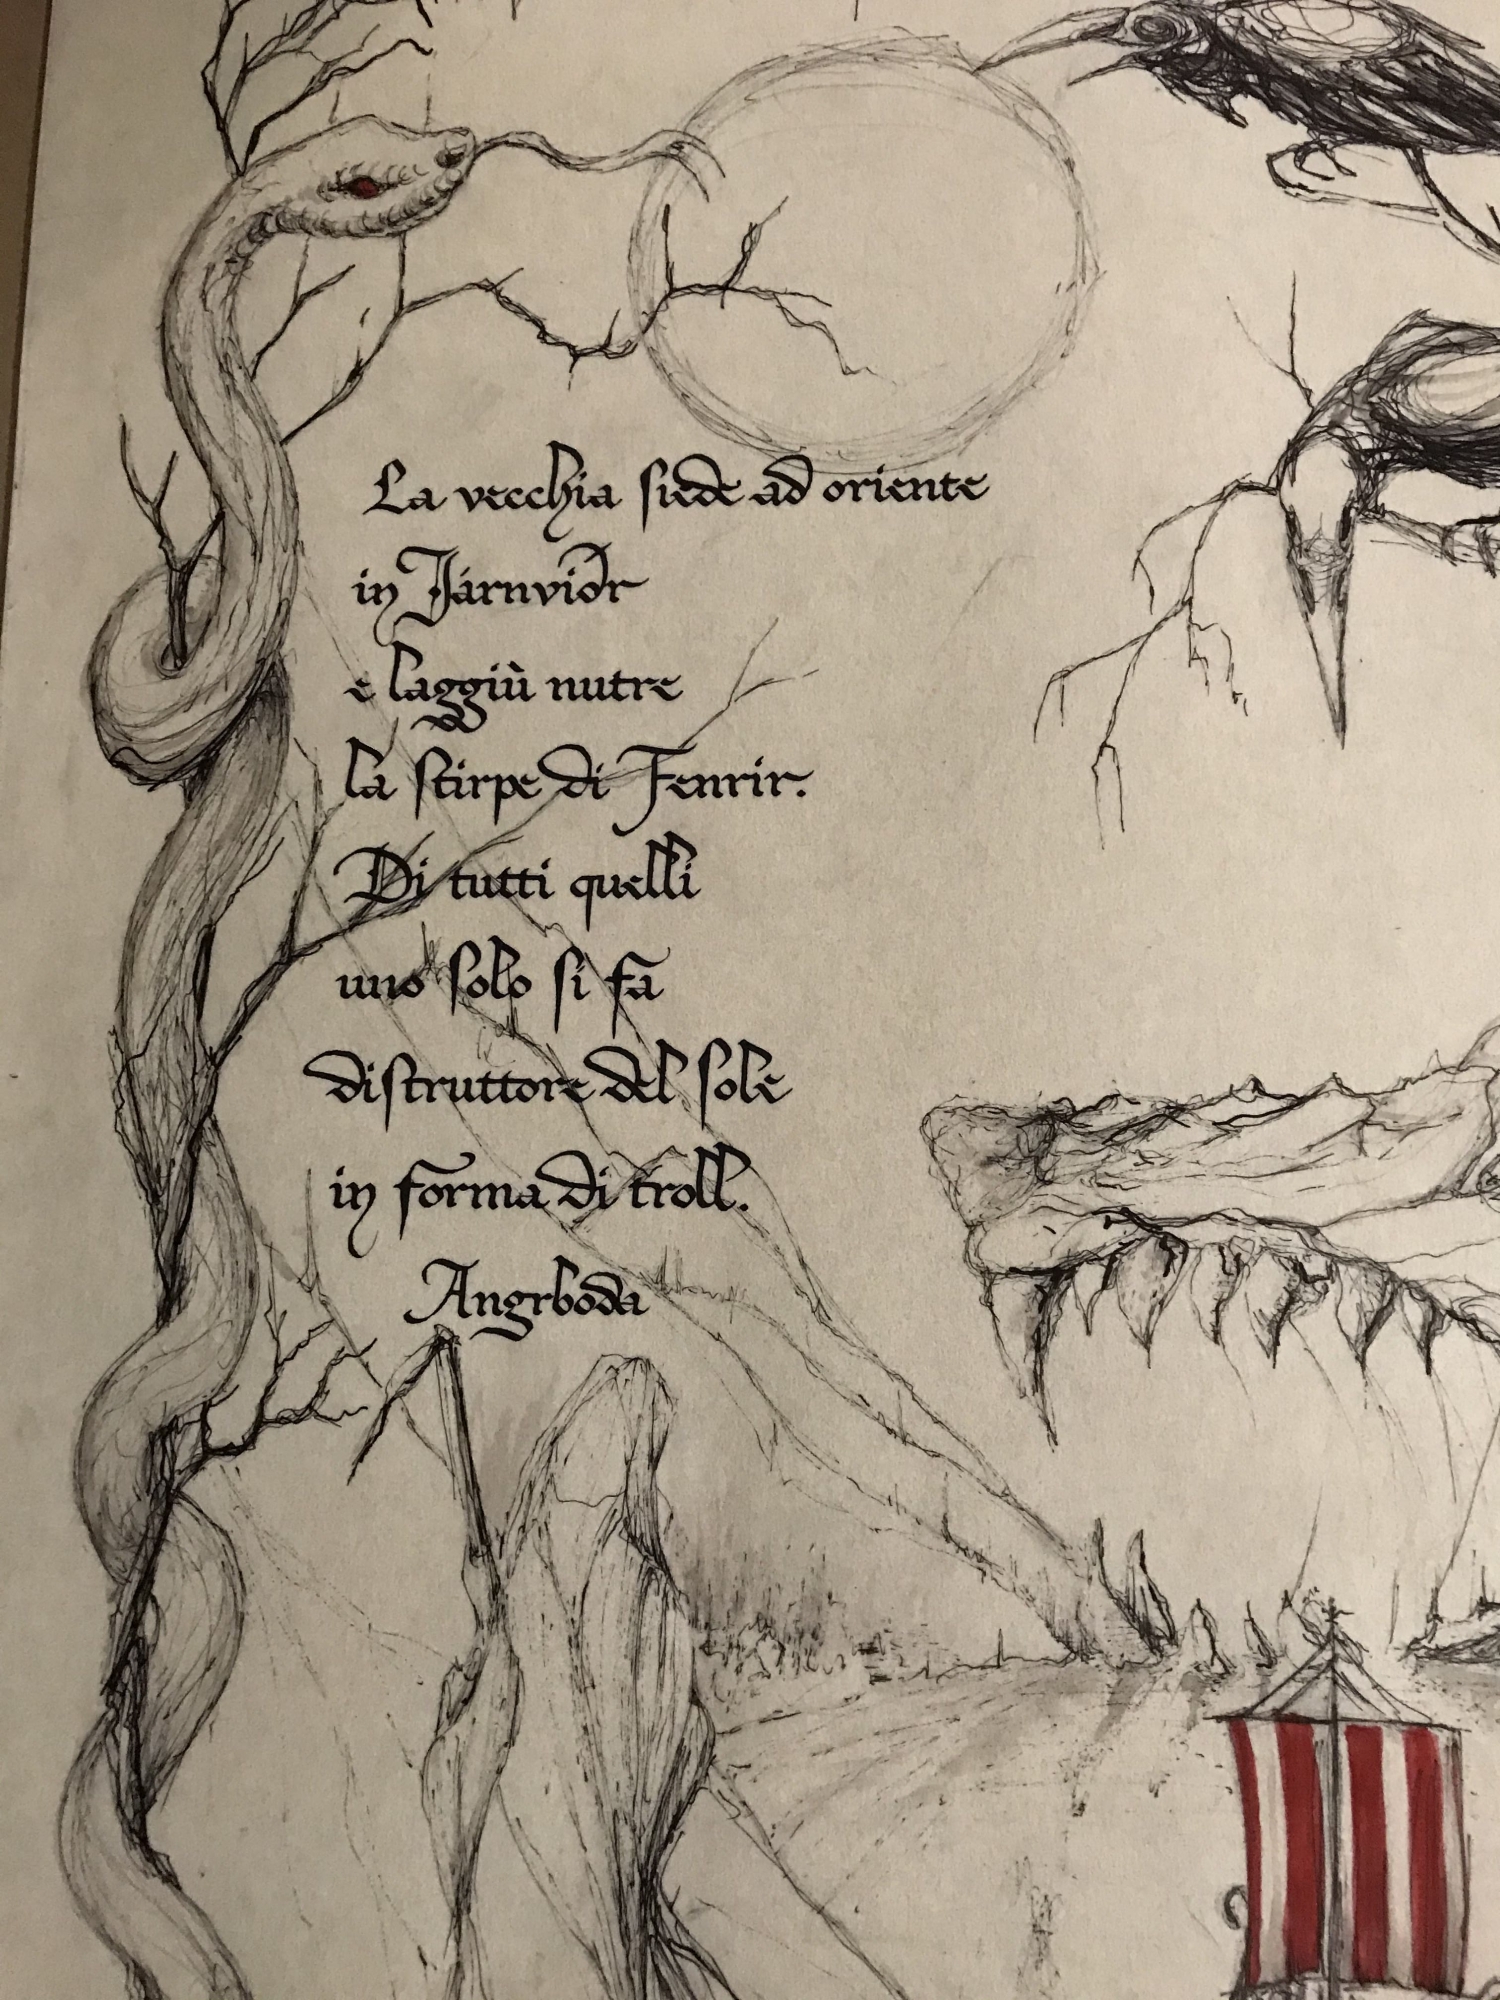 La vecchia siede ad oriente
in Járnviðr
e laggiù nutre
la stirpe di Fenrir.
Di tutti quelli
uno solo si fa
distruttore del sole
in forma di troll.
Angrboda